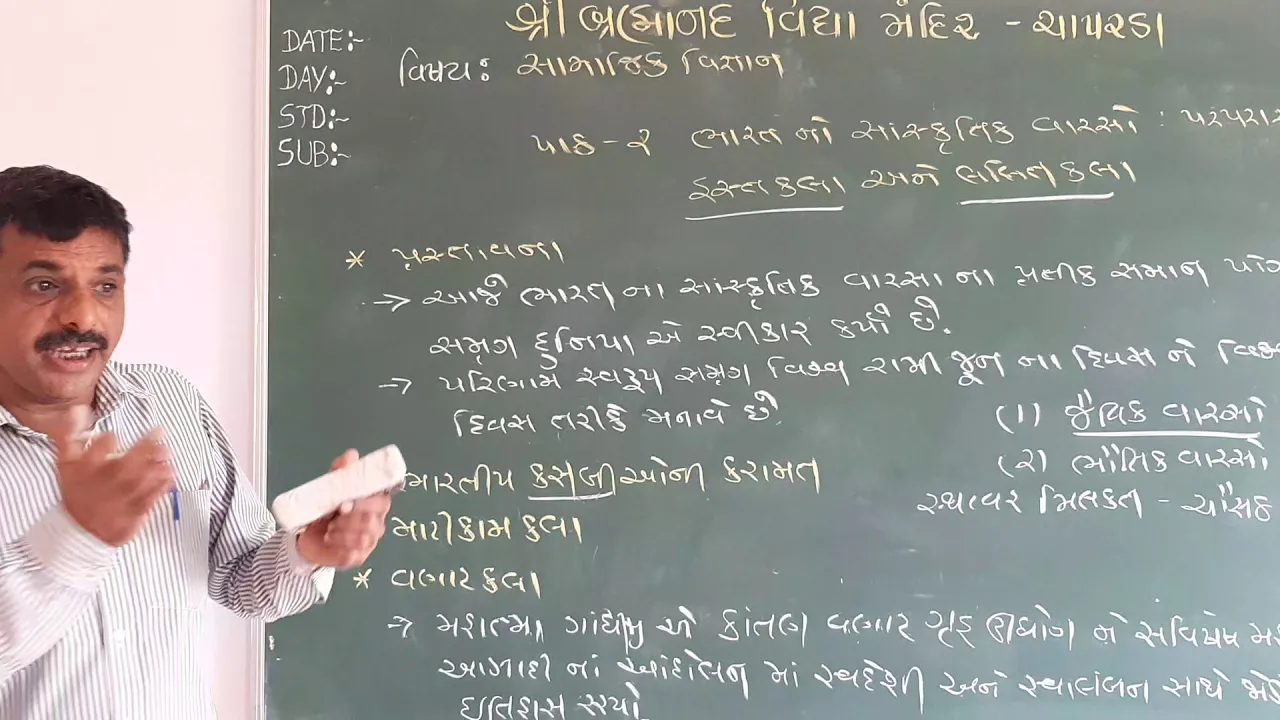 શ્રી બ્રહ્માનંદ વિદ્યા મંદિર - ચાપરડા
DATE:-
DAY:-
STD:-
SUB:-
વિષય: સામાજિક વિજ્ઞાન
પાઠ - ૨ ભારત નો સાંસ્કૃતિક વારસો : પરંપરા
હસ્તકલા અને લલિતકલા
* પ્રસ્તાવના
→ આજે ભારત ના સાંસ્કૃતિક વારસા ના પ્રતીક સમાન
સમગ્ર દુનિયા એ સ્વીકાર કર્યો છે.
→ પરિણામ સ્વરૂપ સમગ્ર વિશ્વ ૨૧મી જૂન ના દિવસ ને
દિવસ તરીકે મનાવે છે.
(૧) જૈવિક વારસો
(૨) ભૌતિક વારસો
સ્થાવર મિલકત - ચોસઠ
ભારતીય કસબીઓની કરામત
માટીકામ કલા
* વણાટ કલા
→ મહાત્મા ગાંધીજી એ કાંતણ વણાટ ગૃહ ઉદ્યોગ ને સવિશેષ
આઝાદી નાં આંદોલન માં સ્વદેશી અને સ્વાલંબન સાથે
ઇતિહાસ રચ્યો